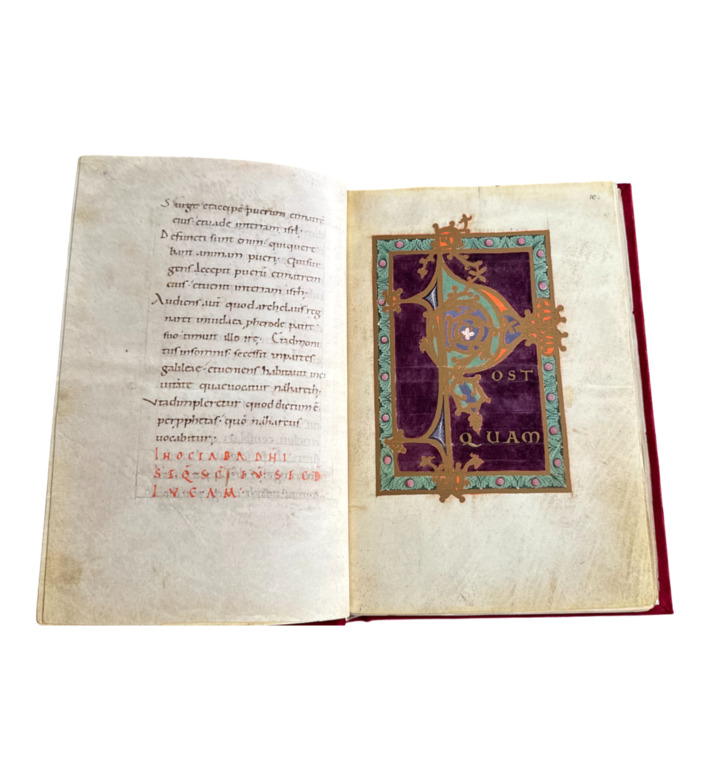 Surge et accipe puerum et matrē
eius et uade in terram isrl.
Defuncti sunt enim qui quere
bant animam pueri. Qui sur
gens accepit puerū et matrem
eius et uenit in terram isrl.
Audiens aut quod archelaus reg
naret in iudaea p herode patre
suo timuit illo ire. Et admoni
tus in somnis secessit in partes
galileae et ueniens habitauit in ci
uitate quae uocatur nazareth.
Ut adimpleretur quod dictum ē
per pphetas quō nazareus
uocabitur.
IN OCTABA DNI
SEQ SCI EV SECD
LVCAM
POST
QUAM